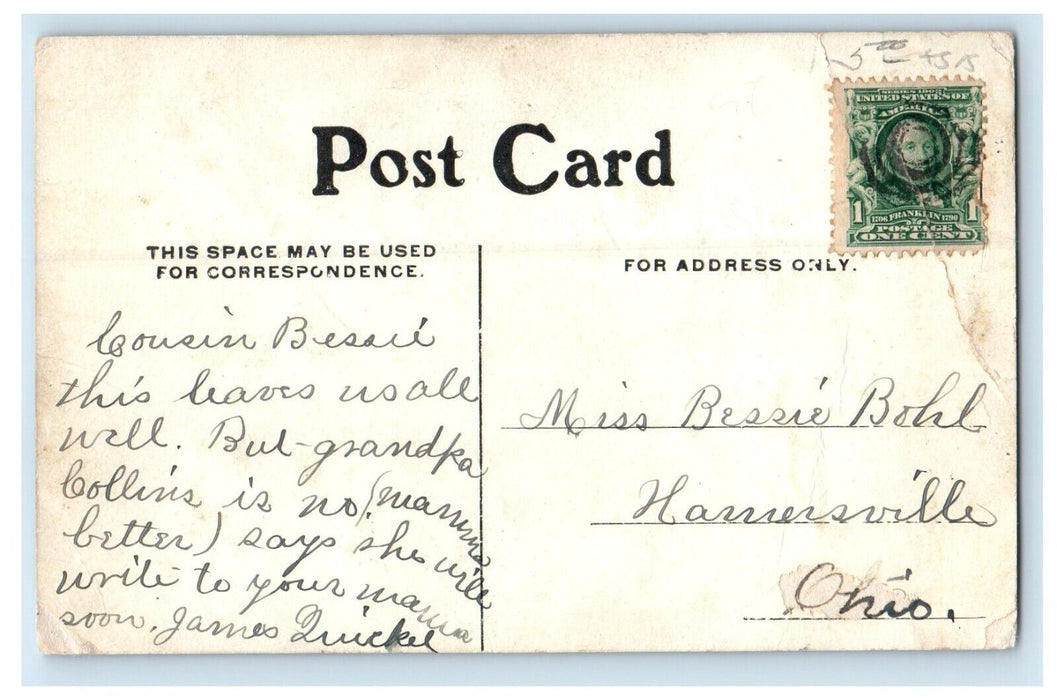 5⁰⁰
SERIES 1902
UNITED STATES OF
AMERICA
1 1706 FRANKLIN 1790 1
POSTAGE
ONE CENT
Post Card
THIS SPACE MAY BE USED
FOR CORRESPONDENCE.
FOR ADDRESS ONLY.
Cousin Bessie
this leaves us all
well. But grandpa
Collins is no (mamma
better) says she will
write to your mamma
soon. James Quickel
Miss Bessie Bohl
Hamersville
Ohio.